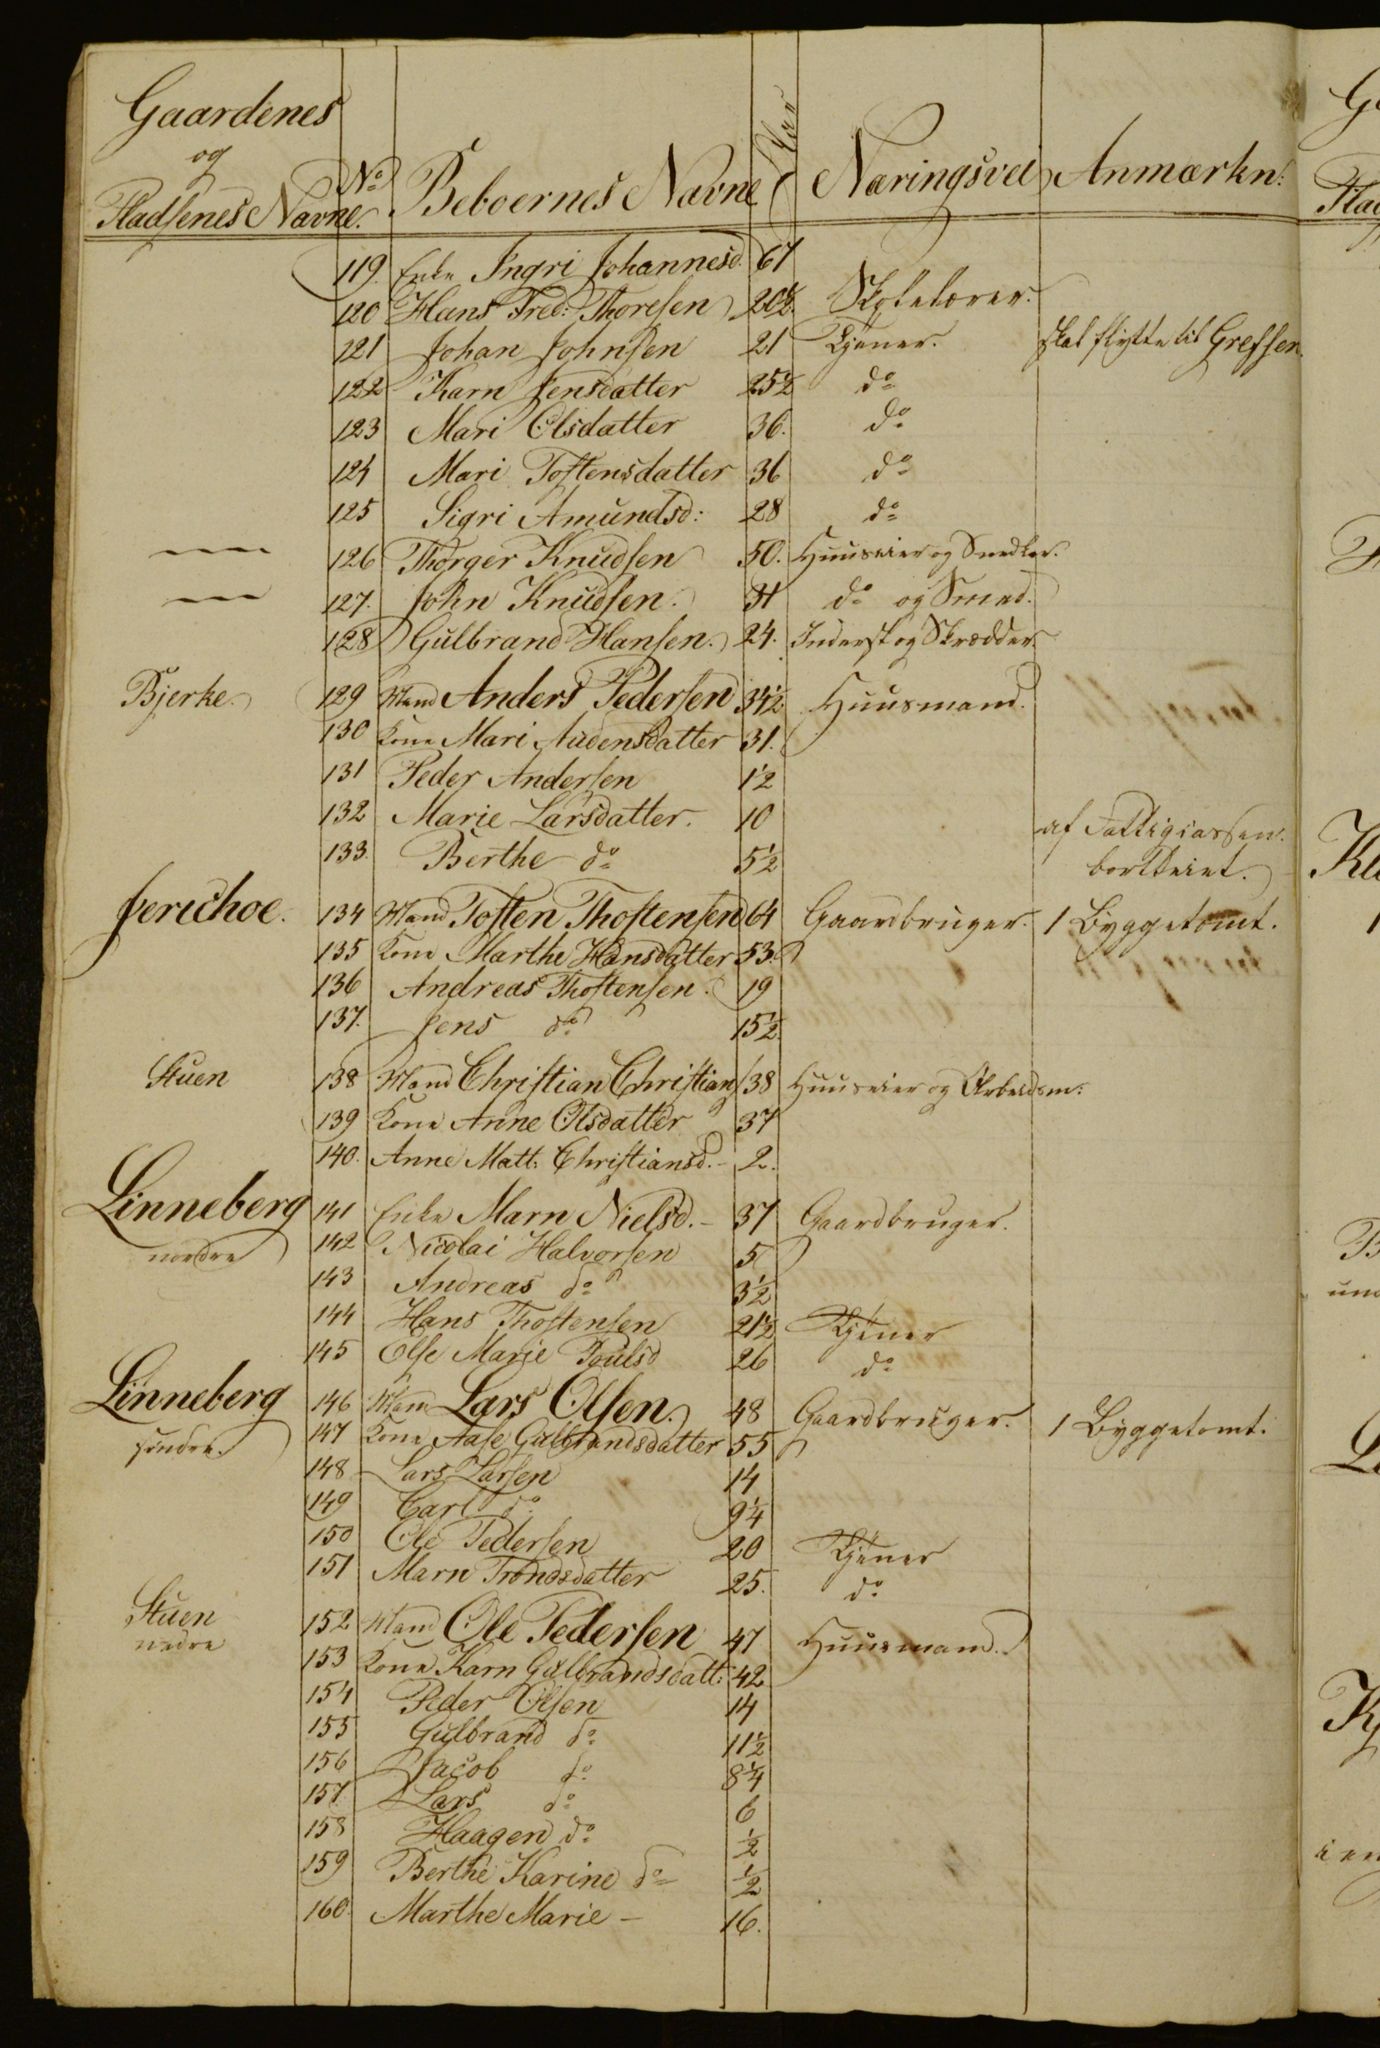 Gaardenes og Pladsenes Navne. No Beboernes Navne Alder Næringsvei Anmærkn:
119. Enke Ingri Johannesd. 67
120 Hans Fred: Thoresen 20½ Skolelærer.
121 Johan Johnsen 21 Tjener. skal flytte til Grefsen.
122 Karn Jensdatter 25½ do
123 Mari Olsdatter 36. do
124 Mari Tostensdatter 36 do
125 Sigri Amundsd: 28 do
— 126 Thorger Knudsen 50. Huuseier og Snedker.
— 127. John Knudsen. 31 do og Smed.
128 Gulbrand Hansen. 24. Inderst og Skrædder
Bjerke. 129 Mand Anders Pedersen 34½ Huusmand.
130 Kone Mari Audensdatter 31.
131 Peder Andersen 1½
132 Marie Larsdatter. 10 af Fattigcassen
133. Berthe do 5½ bortleiet.
Jerichoe. 134 Mand Tosten Thostensen 64 Gaardbruger. 1 Byggetomt.
135 Kone Marthe Hansdatter 53.
136 Andreas Thostensen. 19
137. Jens do 15½
Stuen 138 Mand Christian Christians 38 Huuseier og Arbeidsm:
139 Kone Anne Olsdatter 37
140. Anne Matt: Christiansd. - 2.
Linneberg 141 Enke Marn Nielsd. - 37 Gaardbruger.
nordre 142 Nicolai Halvorsen 5
143 Andreas do 3½
144 Hans Thostensen 21½ Tjener
145 Else Marie Poulsd 26 do
Linneberg 146 Mand Lars Olsen. 48 Gaardbruger. 1 Byggetomt.
søndre. 147 Kone Aase Gulbrandsdatter 55
148 Lars Larsen 14
149 Carl do 9¼
150 Ole Pedersen 20 Tjener
151 Marn Trondsdatter 25. do
Stuen 152 Mand Ole Pedersen 47 Huusmand.
nedre 153 Kone Karn Gulbrandsdatt: 42
154 Peder Olsen 14
155 Gulbrand do 11½
156 Jacob do 8¼
157. Lars do 6
158 Haagen do ½
159 Berthe Karine do ½
160. Marthe Marie - 16.